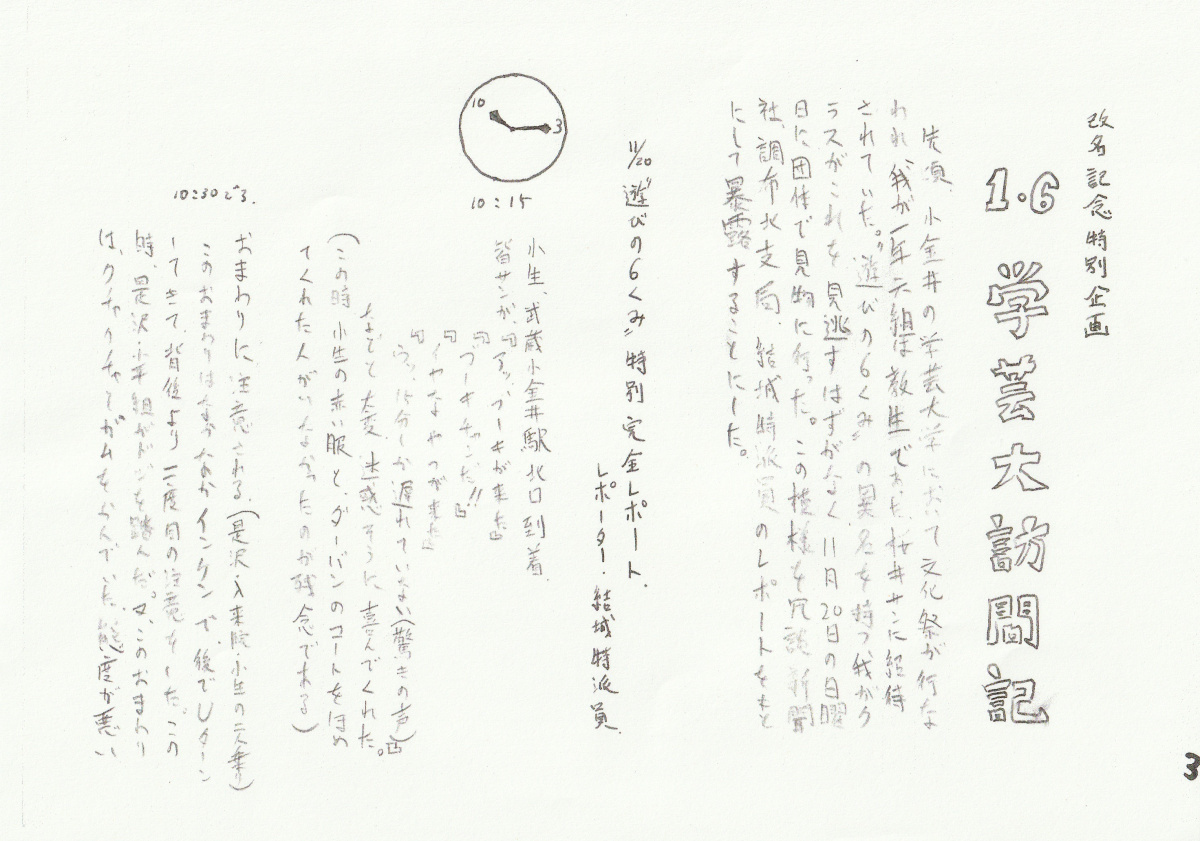 改名記念特別企画
1・6 学芸大訪問記
先頃、小金井の学芸大学において文化祭が行な
われ、我が一年六組は教生でおた、桜井サンに招待
されていた。“遊びの6くみ”の異名を持つ、我がク
ラスがこれを見逃すはずがなく11月20日の日曜
日に団体で見物に行った。この模様を冗談新聞
社、調布北支局、結城特派員のレポートをもと
にして暴露することにした。
11/20“遊びの6くみ”特別完全レポート、
レポーター・結城特派員
10
3
10:15
小生、武蔵小金井駅北口到着、
皆サンが、
『アッ、ブーキが来た』
『ブーキチャンだ!!』
『イヤなやつがまた』
『ウッ、15分しか遅れていない(驚きの声)』
などと大変、迷惑そうに喜んでくれた。
(この時小生の赤い服と、ダーバンのコートをほめ
てくれた人がいなかったのが残念でれる)
10:30ごろ、
おまわりに、注意される、(是沢、入来院小生の二人乗り)
このおまわりはなかなかインケンで、後でUターン
してきて、背後より二度目の注意をした。この
時、是沢・小平組がドジを踏んだ。マ、このおまわり
は、クチャクチャとガムをかんでいた、態度が悪い
3